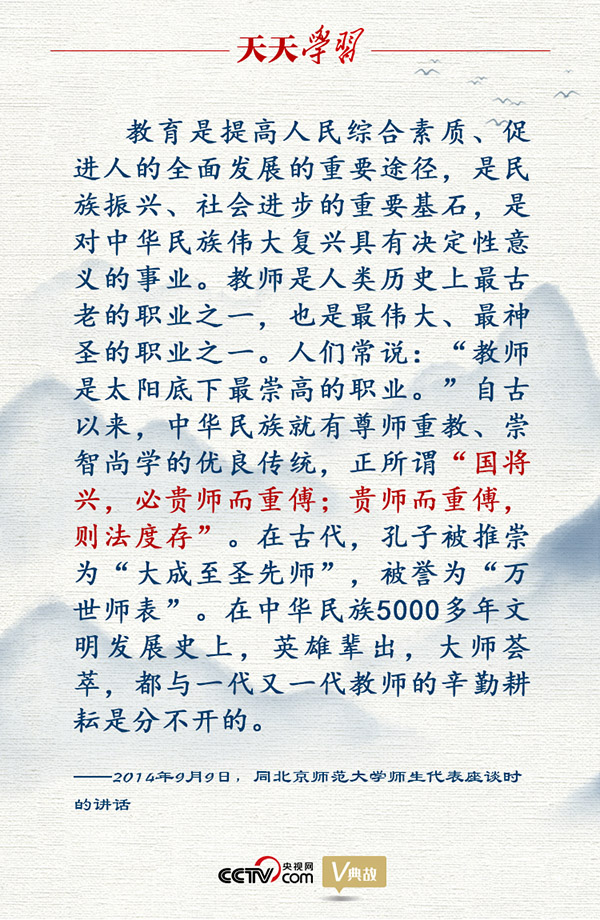 天天学習
教育是提高人民综合素质、促
进人的全面发展的重要途径，是民
族振兴、社会进步的重要基石，是
对中华民族伟大复兴具有决定性意
义的事业。教师是人类历史上最古
老的职业之一，也是最伟大、最神
圣的职业之一。人们常说：“教师
是太阳底下最崇高的职业。”自古
以来，中华民族就有尊师重教、崇
智尚学的优良传统，正所谓“国将
兴，必贵师而重傅；贵师而重傅，
则法度存”。在古代，孔子被推崇
为“大成至圣先师”，被誉为“万
世师表”。在中华民族5000多年文
明发展史上，英雄辈出，大师荟
萃，都与一代又一代教师的辛勤耕
耘是分不开的。
——2014年9月9日，同北京师范大学师生代表座谈时
的讲话
CCTV.com 央视网 V典故